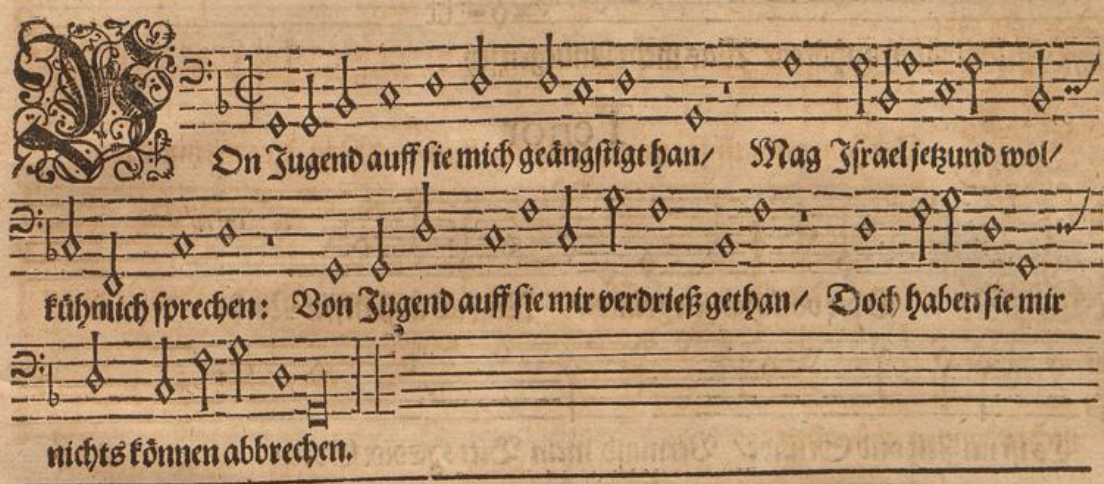 VOn Jugend auff sie mich geängstigt han/ Mag Israel jetzund wol/
kühnlich sprechen: Von Jugend auff sie mir verdrieß gethan/ Doch haben sie mir
nichts können abbrechen.